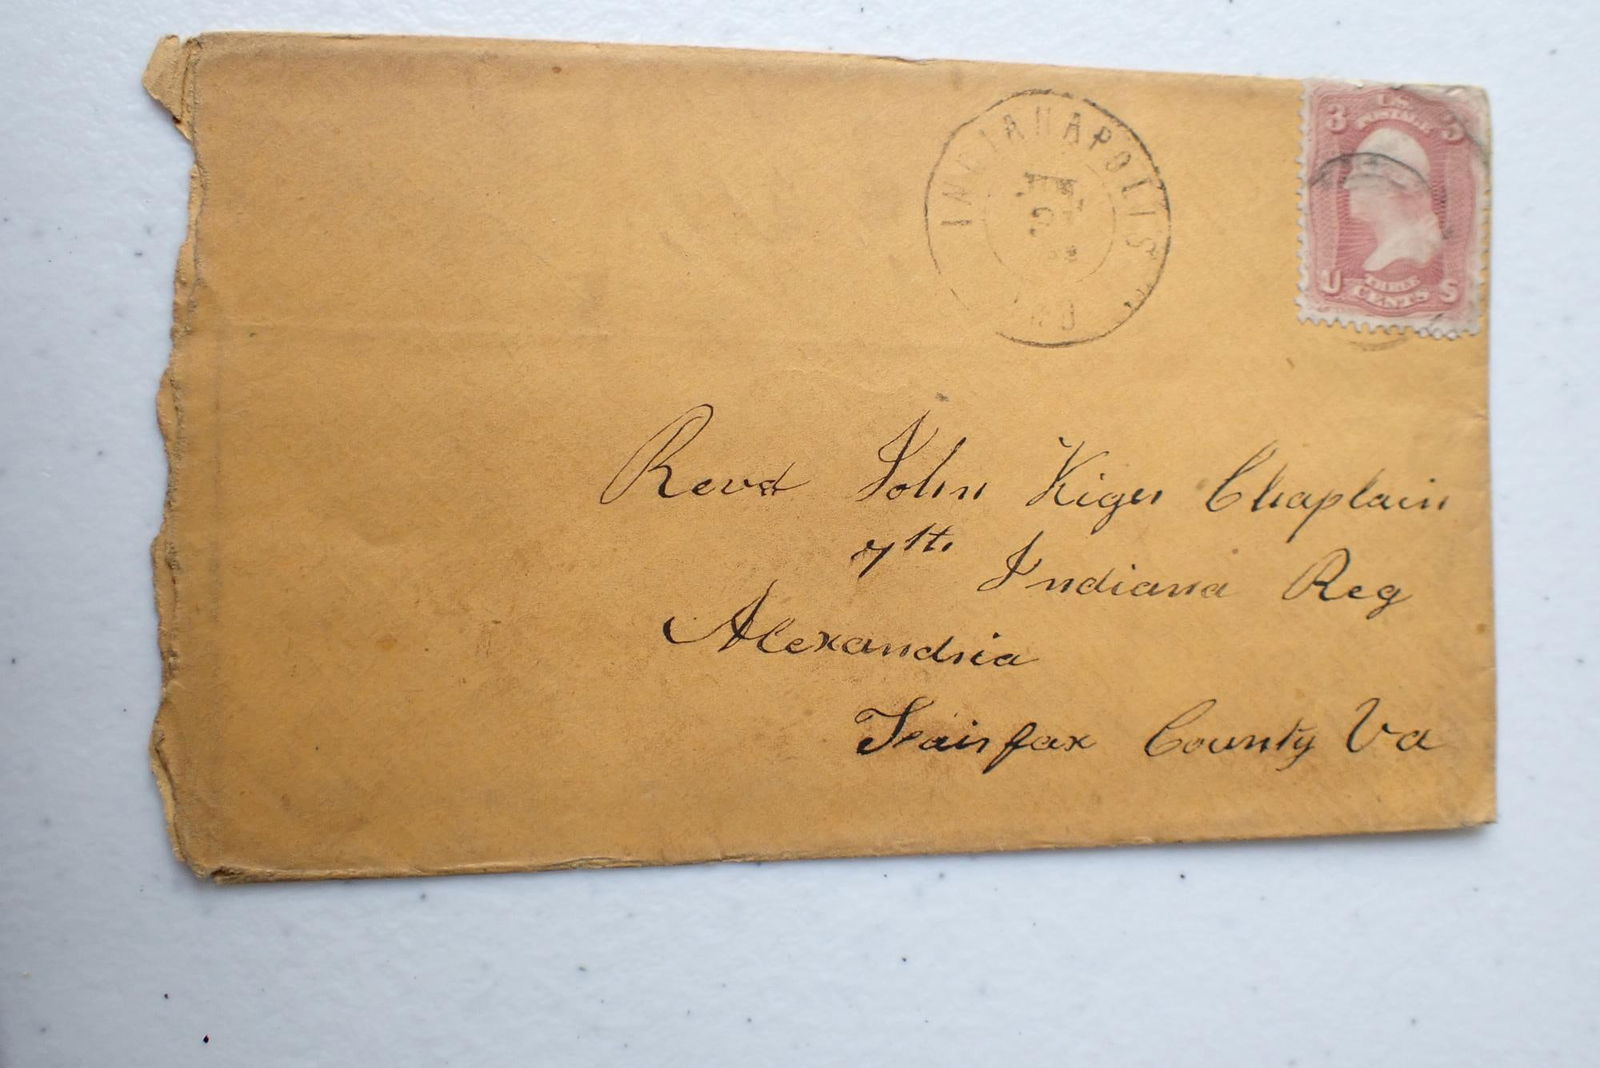 INDIANAPOLIS
IND
3 U.S. 3
POSTAGE
U THREE S
CENTS
Revd John Kiger Chaplain
7th Indiana Reg
Alexandria
Fairfax County Va